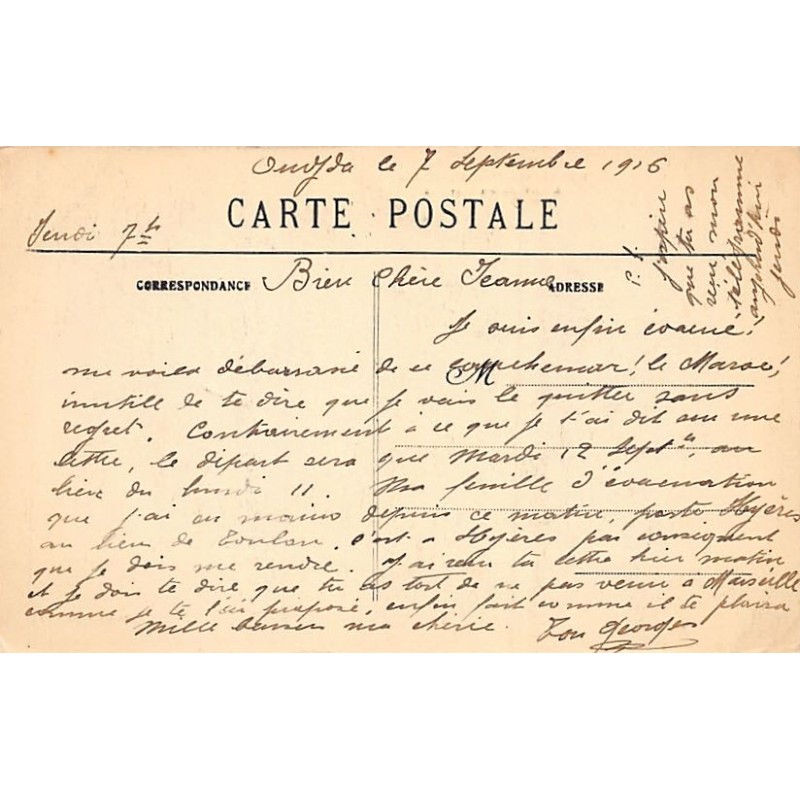 Oudjda le 7 Septembre 1916
CARTE POSTALE
Jeudi 7h
CORRESPONDANCE
ADRESSE
Bien chère Jeanne
Je suis enfin évacué!
me voila débarrassé de ce cauchemar! le Maroc!
M
inutille de te dire que je vais le quitter sans
regret. Contrairement à ce que je t'ai dit sur une
lettre, le départ sera que Mardi 12 Sept. au
lieu du lundi 11. Ma feuille d'évacuation
que j'ai en mains depuis ce matin, porte Hyères
au lieu de Toulon. c'est a Hyères par conséquent
que je dois me rendre. J'ai reçu ta lettre hier matin
et je dois te dire que tu as tort de ne pas venir a Marseille
comme je te l'ai proposé, enfin fait comme il te plaira
Mille baisers ma chérie. Ton Georges
P.S. j'espère
que tu as
reçu mon
télégramme
aujourd'hui
jeudi